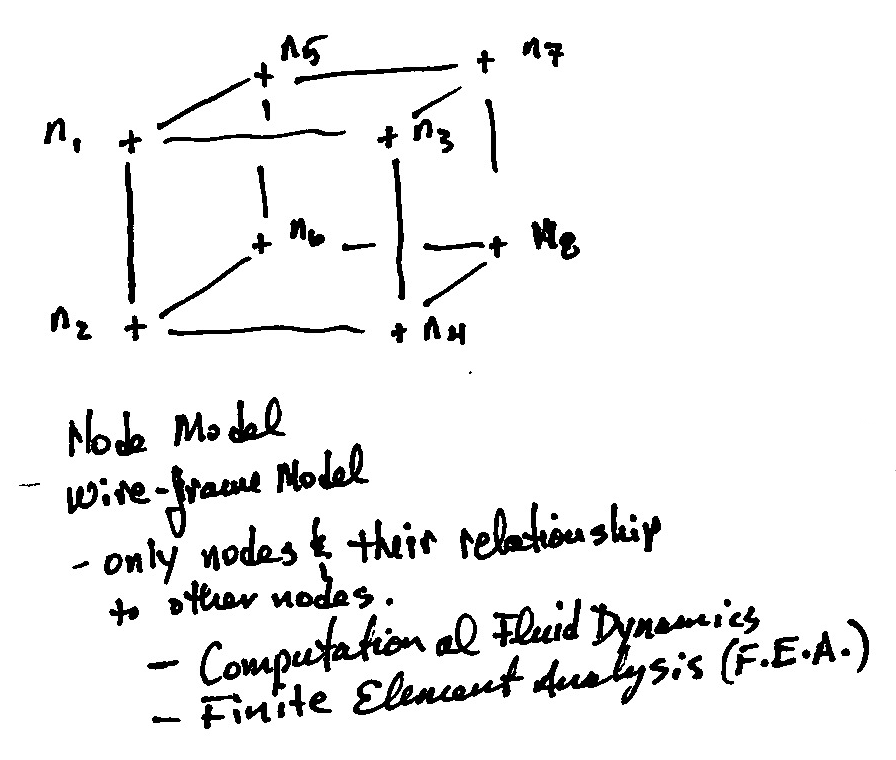 n5 n7
n1 n3
n6 N8
n2 n4
Node Model
Wire-frame Model
- only nodes & their relationship
to other nodes.
- Computational Fluid Dynamics
- Finite Element Analysis (F.E.A.)